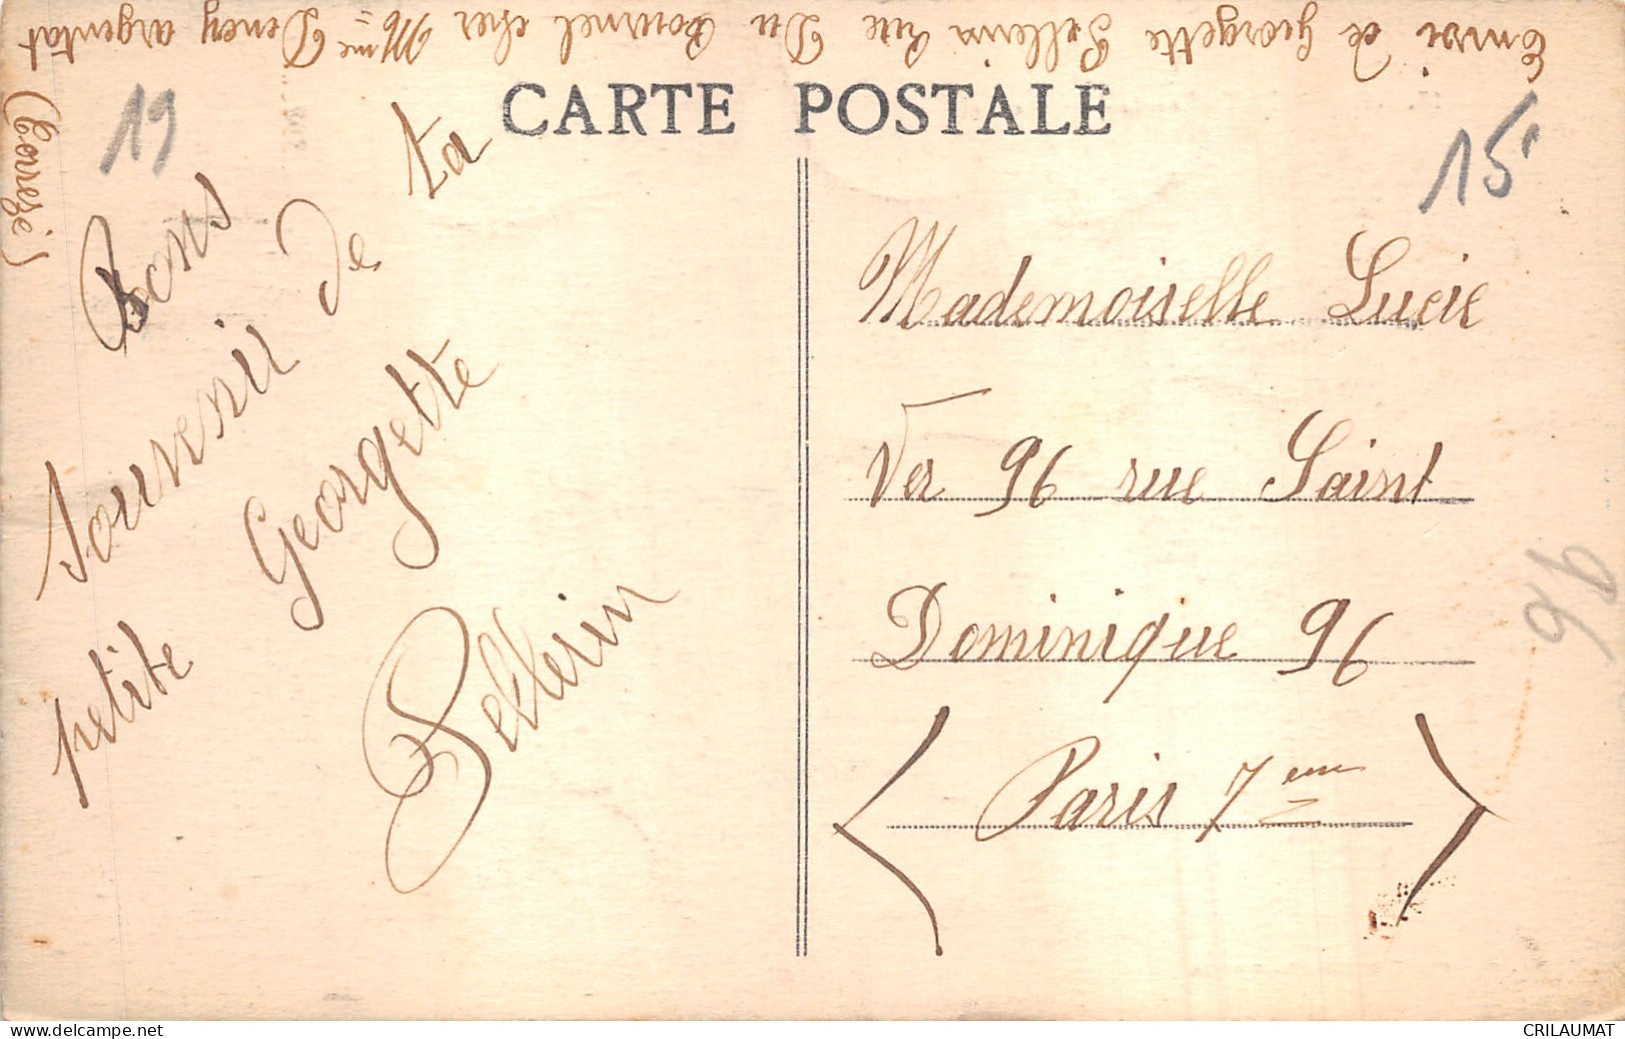 Envoi de Georgette Pellerin Rue Du Tournel cher Mme Deney argentat
(Correze)
CARTE POSTALE
19
15
Bons
souvenir de ta
petite Georgette
Pellerin
Mademoiselle Lucie
Ver 96 rue Saint
Dominique 96
Paris 7eme
96
CRILAUMAT